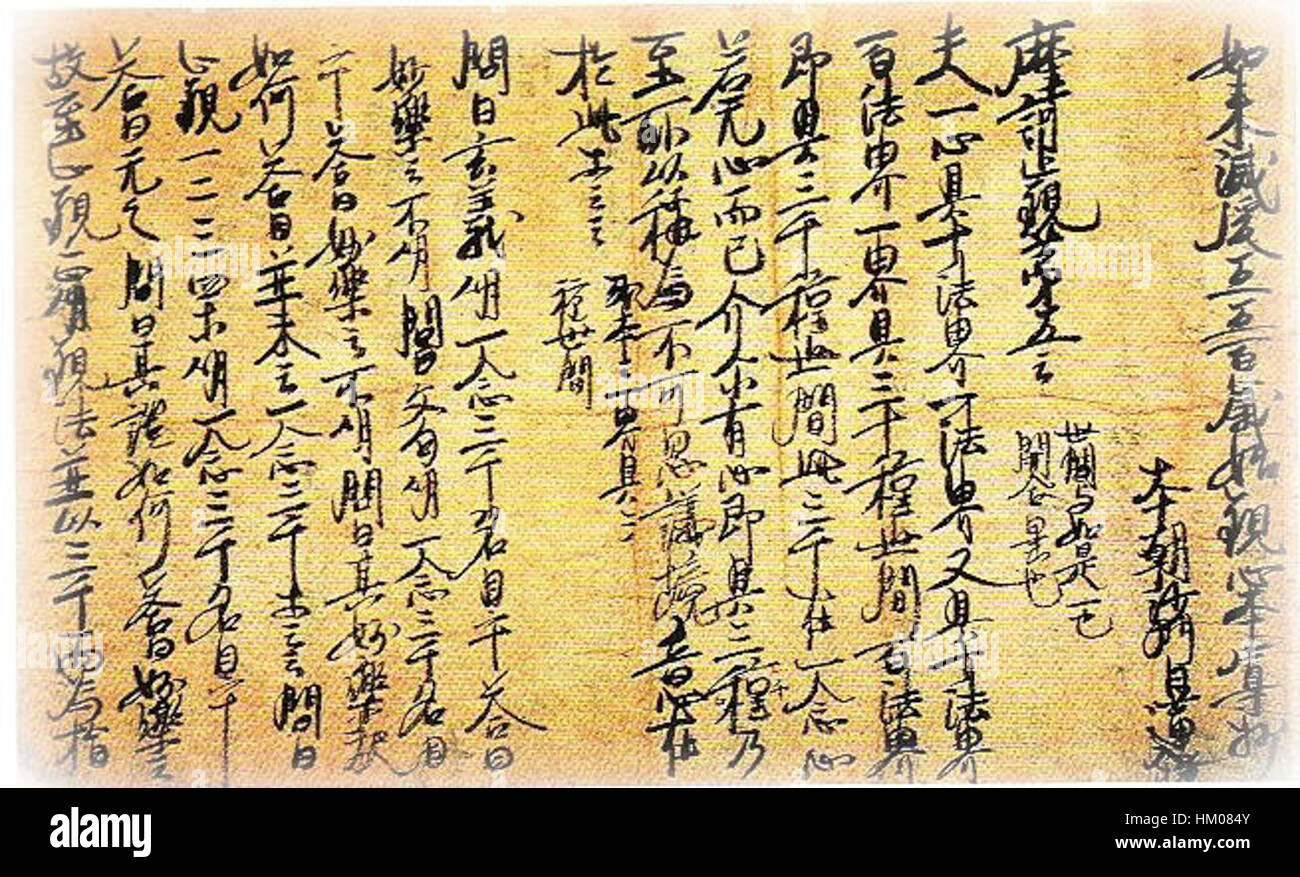 如来滅後五五百歳始観心本尊抄
本朝沙門日蓮撰
摩訶止観第五云
世間与如是一也
開合異也
夫一心具十法界一法界又具十法界
百法界一界具三十種世間百法界
即具三千種世間此三千在一念心
若无心而已介尓有心即具三千乃
至所以称為不可思議境意在
於此等云云
或本云一界具三
種世間
問曰玄義明一念三千名目乎答曰
妙楽云不明問曰文句明一念三千名目
乎答曰妙楽云不明問曰其妙楽釈
如何答曰並未云一念三千等云云問曰
止観一二三四等明一念三千名目乎
答曰无之問曰其証如何答曰妙楽云
故至止観正明観法並以三千而為指
alamy
alamy
Image ID: HM084Y
www.alamy.com